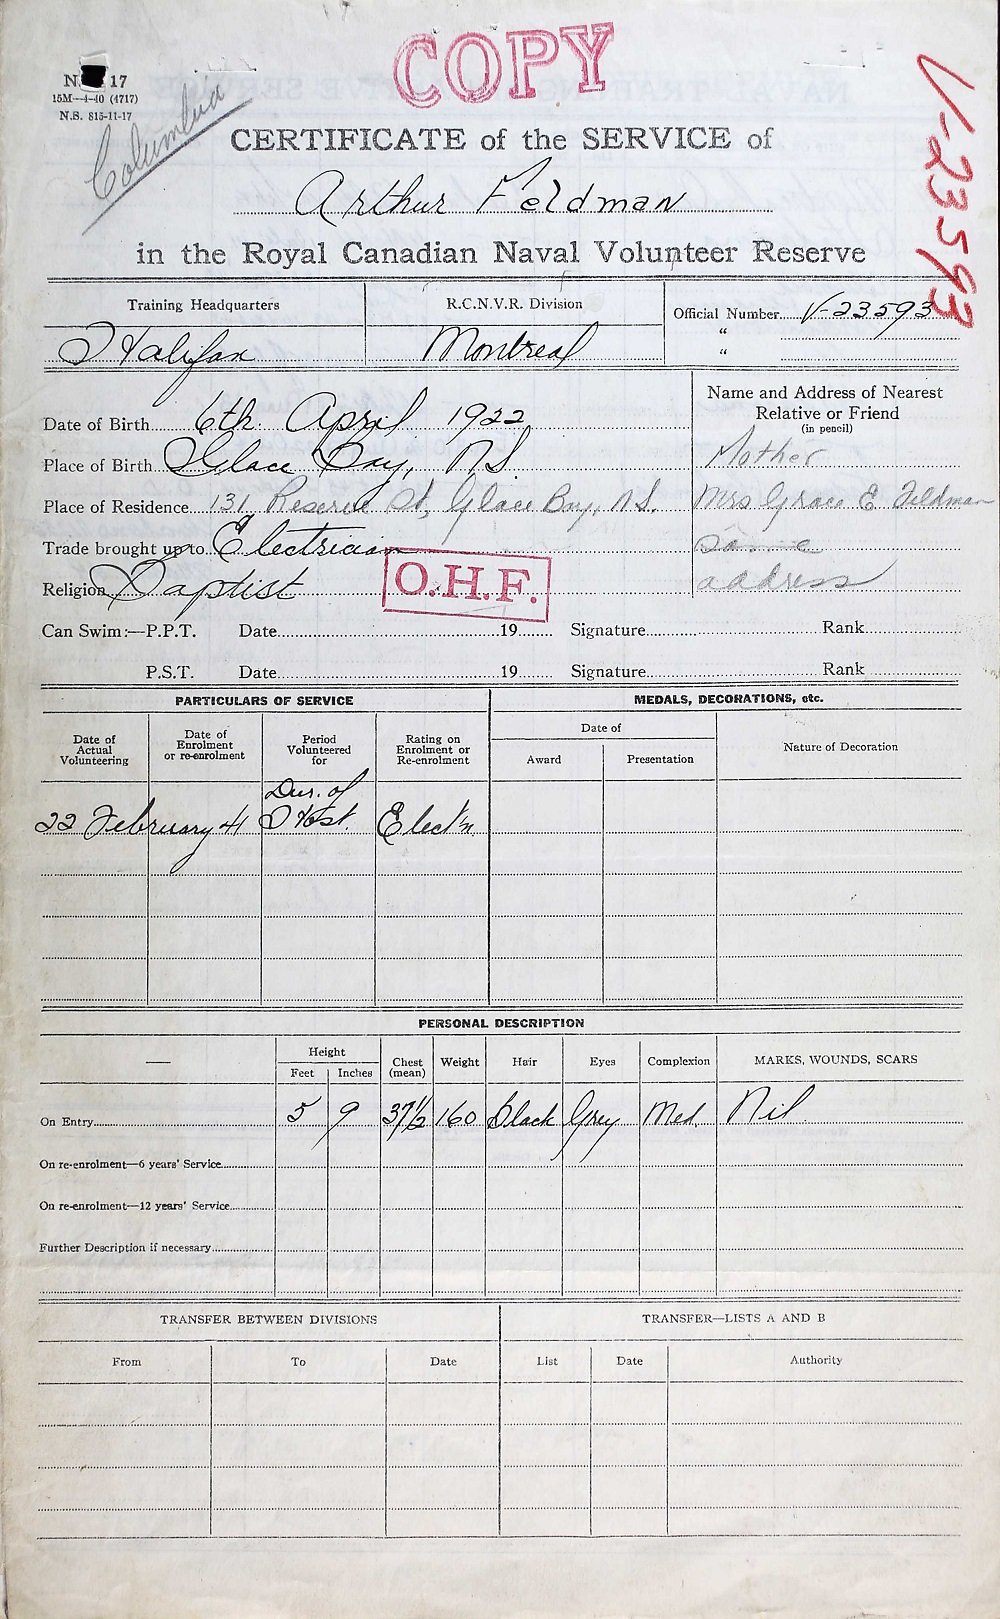 COPY
17
15M—4-40 (4717)
N.S. 815-11-17
Columbia
V-23593
CERTIFICATE of the SERVICE of
Arthur Feldman
in the Royal Canadian Naval Volunteer Reserve
Training Headquarters R.C.N.V.R. Division Official Number V-23593
Halifax Montreal "
"
Name and Address of Nearest
Relative or Friend
(in pencil)
Date of Birth 6th April 1922
Place of Birth Glace Bay, NS Mother
Place of Residence 131 Reserve St, Glace Bay, N.S. Mrs Grace E Feldman
Trade brought up to Electrician same
Religion Baptist O.H.F. address
Can Swim:—P.P.T. Date 19 Signature Rank
P.S.T. Date 19 Signature Rank
PARTICULARS OF SERVICE MEDALS, DECORATIONS, etc.
Date of Actual Volunteering Date of Enrolment or re-enrolment Period Volunteered for Rating on Enrolment or Re-enrolment Date of Nature of Decoration
Award Presentation
Dur. of
22 February 41 Host. Elect'n
PERSONAL DESCRIPTION
— Height Chest (mean) Weight Hair Eyes Complexion MARKS, WOUNDS, SCARS
Feet Inches
On Entry 5 9 37½ 160 Black Grey Med. Nil
On re-enrolment—6 years' Service
On re-enrolment—12 years' Service
Further Description if necessary
TRANSFER BETWEEN DIVISIONS TRANSFER—LISTS A AND B
From To Date List Date Authority